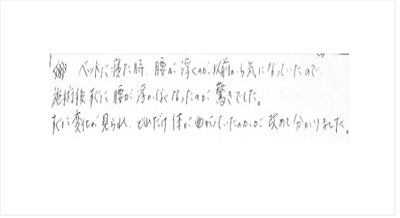 ベッドに寝た時、腰が浮くのが以前から気になっていたので
施術後すぐに腰が浮かなくなったのが驚きでした。
すぐに変化が見られ、どれだけ体が曲がっていたのかが改めて分かりました。